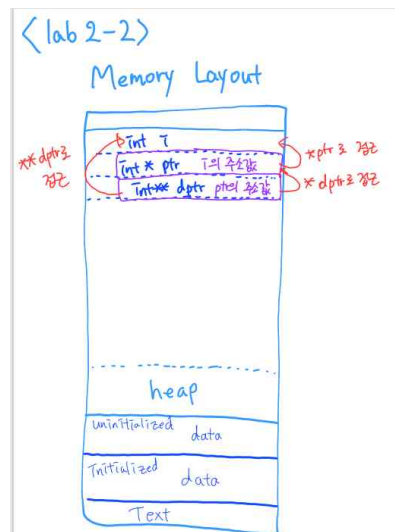 <lab 2-2>
Memory Layout
int i
**dptr로
접근
*ptr로 접근
int* ptr i의 주소값
int** dptr ptr의 주소값
*dptr로 접근
heap
uninitialized data
Initialized data
Text